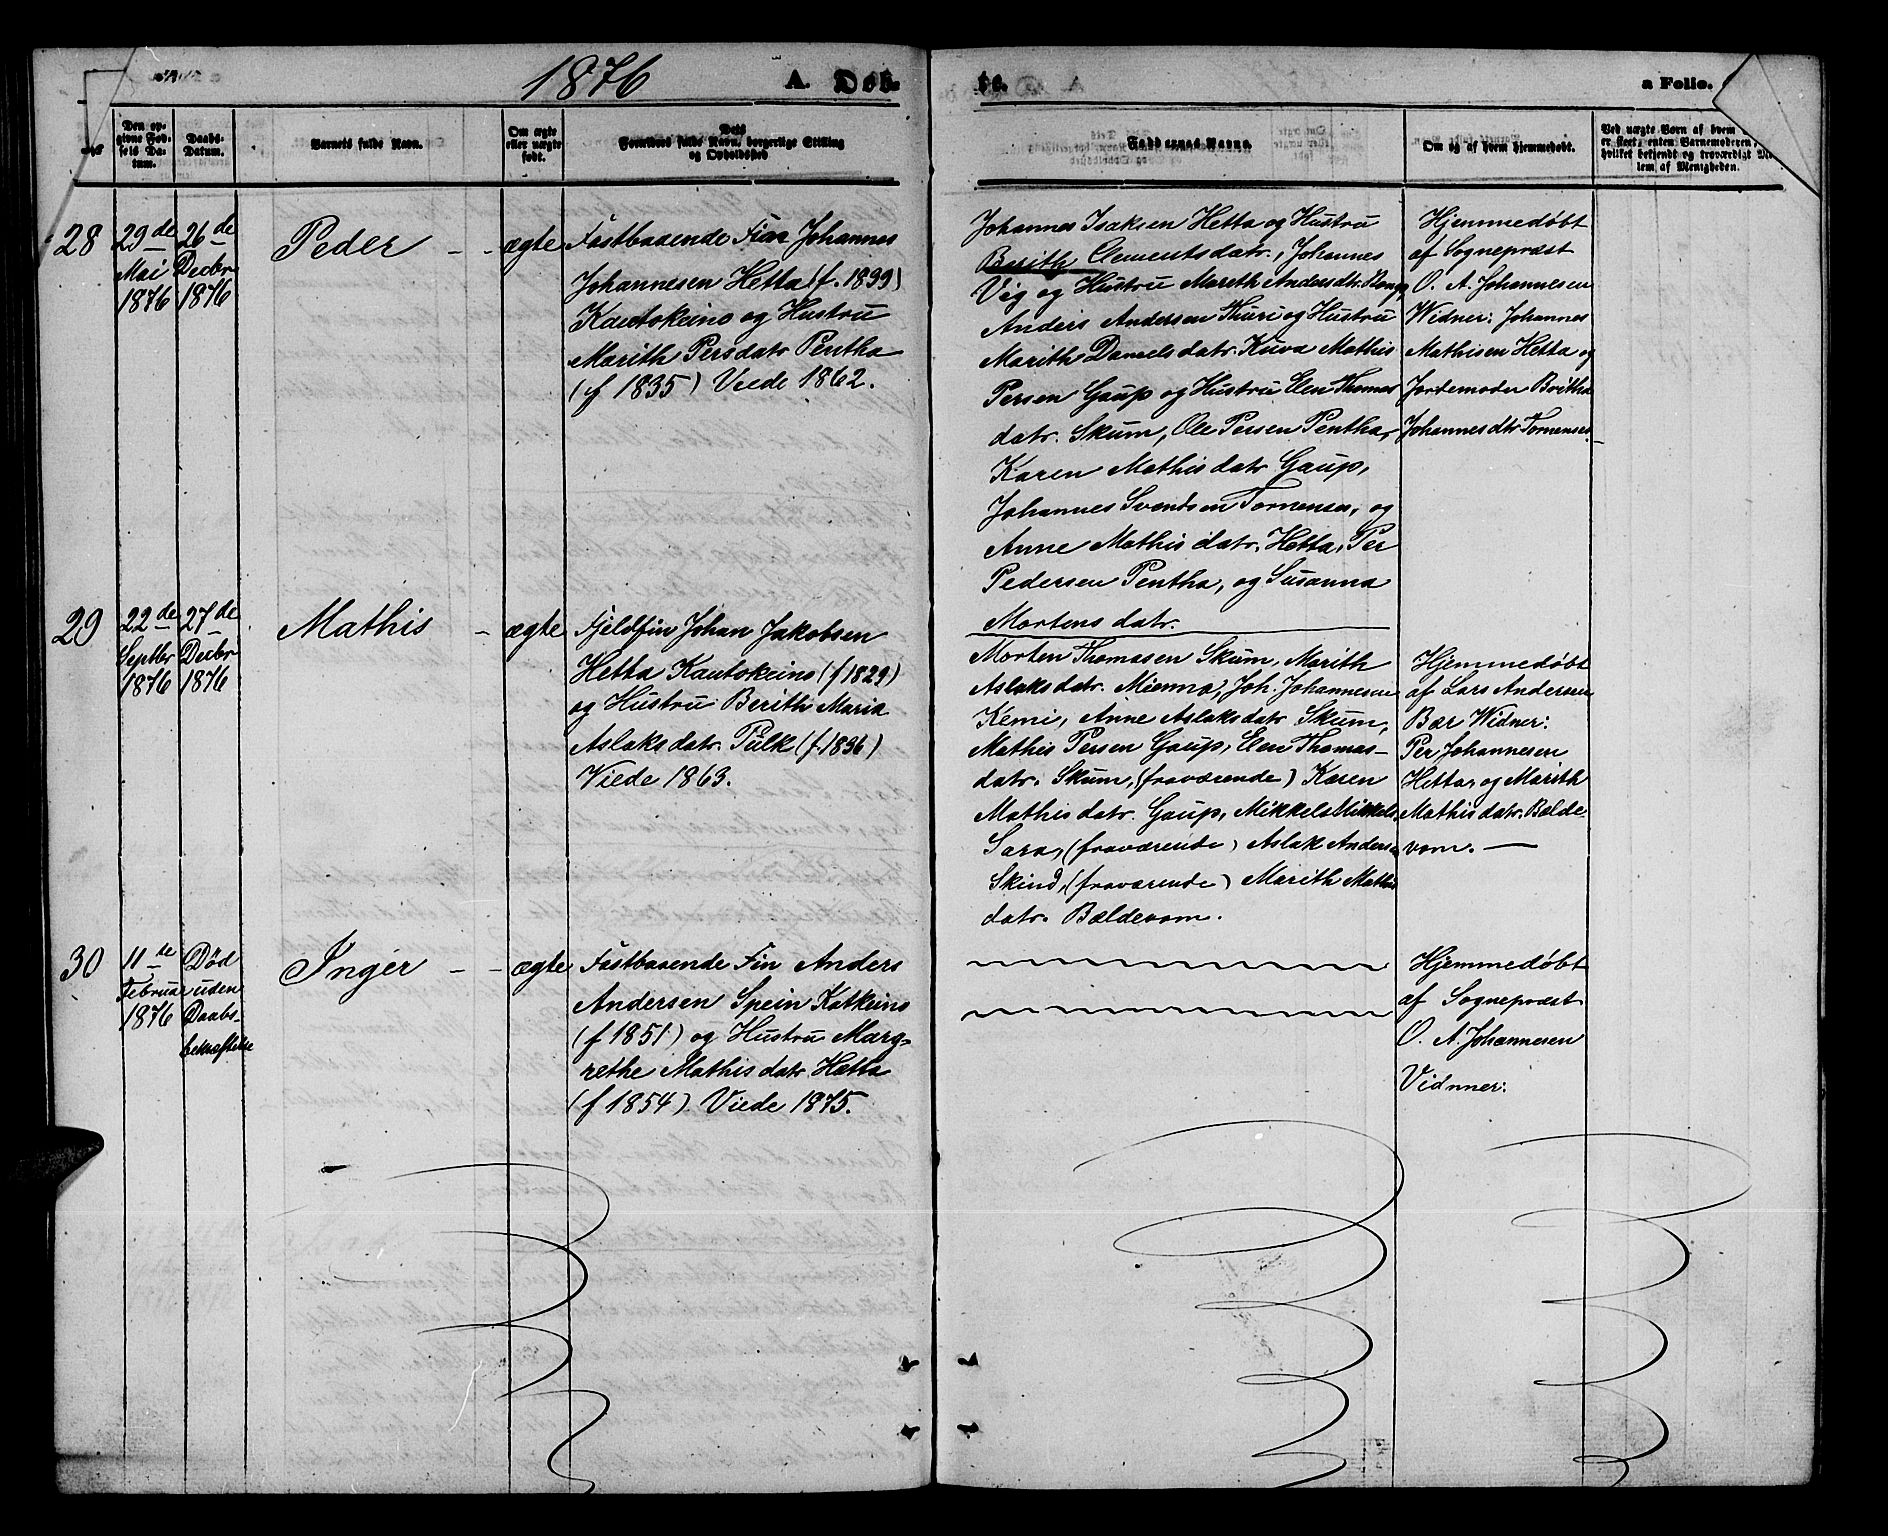 1876
A. Døb.
a Folio.
Den opgivne Fødsels Datum.
Daabs-Datum.
Barnets fulde Navn.
Om ægte eller uægte født.
Forældrenes fulde Navn, borgerlige Stilling og Opholdssted
Faddernes Navne.
Om og af hvem hjemmedøbt.
28
29de
Mai
1876
26de
Decbr
1876
Peder
ægte
Fastboaende Fin Johannes
Johannesen Hetta (f. 1839)
Kautokeino og Hustru
Marith Persdatr Pentha
(f 1835) Viede 1862.
Johannes Isaksen Hetta og Hustru
Berith Clementsdatr., Johannes
Vig og Hustru Mareth Andersdtr.
Anders Andersen Thuri og Hustru
Marith Danielsdatr. Kuva Mathis
Persen Gaup og Hustru Elen Thomas
datr. Skum, Ole Persen Pentha,
Karen Mathisdatr Gaup,
Johannes Svendsen Tornensis, og
Anne Mathisdatr. Hetta, Per
Pedersen Pentha, og Susanna
Mortensdatr.
Hjemmedøbt
af Sognepræst
O. A. Johannesen
Widner: Johannes
Mathisen Hetta og
Jordemoder Britha
Johannesdtr Tornenses.
29
22de
Septbr
1876
27de
Decbr
1876
Mathis
ægte
Fjeldfin Johan Jakobsen
Hetta Kautokeino (f 1829)
og Hustru Berith Maria
Aslaksdatr. Pulk (f. 1836)
Viede 1863.
Morten Thomasen Skum, Marith
Aslaksdatr. Mienna, Joh. Johannesen
Kemi, Anne Aslaksdatr Skum,
Mathis Persen Gaup, Elen Thomas-
datr. Skum, (fraværende) Karen
Mathisdatr. Gaup, Mikkel Mikkels.
Sara, (fraværende) Aslak Andersen
Skind, (fraværende) Marith Mathis
datr. Bældevom.
Hjemmedøbt
af Lars Andersen
Bær Widner:
Per Johannesen
Hetta, og Marith
Mathisdatr. Bælde-
vom. —
30
11te
Februar
1876
Død
uden
Daabs-
bekræftelse
Inger
ægte
Fastboaende Fin Anders
Andersen Spein Katkeino
(f 1851) og Hustru Marg-
rethe Mathisdatr Hætta
(f 1854) Viede 1875.
Hjemmedøbt
af Sognepræst
O. A. Johannesen
Vidnner: